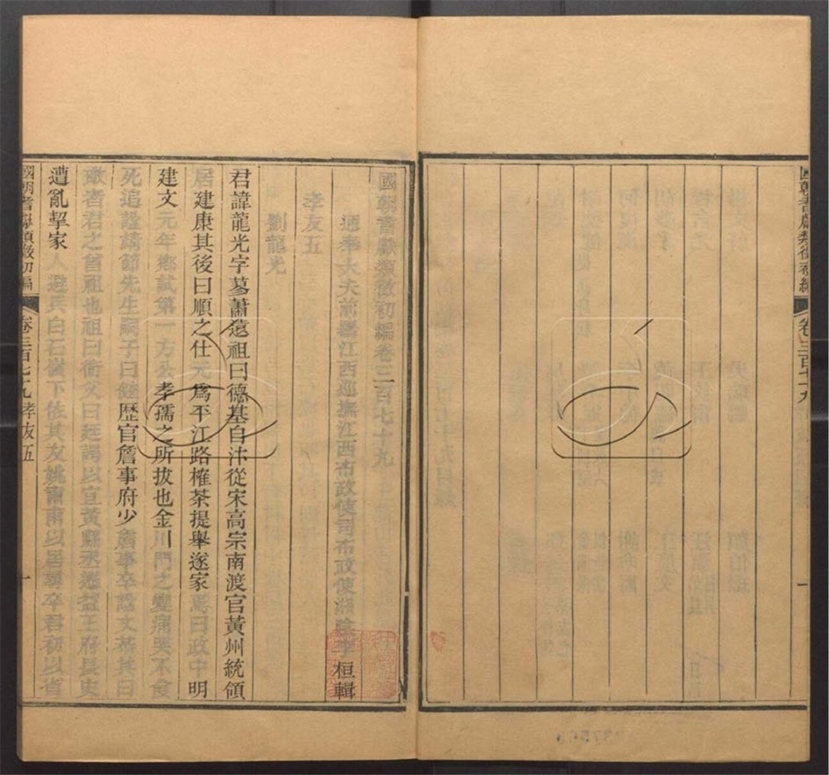 國朝耆獻類徵初編 卷三百七十九 一
國朝耆獻類徵初編卷三百七十九
通奉大夫前署江西巡撫江西布政使司布政使湘陰李桓輯
孝友五
劉龍光
君諱龍光字蟇蕭遠祖曰德基自汴從宋高宗南渡官黃州統領
居建康其後曰順之仕元爲平江路榷茶提舉遂家焉曰政中明
建文元年鄉試第一方公孝孺之所拔也金川門之變痛哭不食
死追諡靖節先生嗣子曰鉉歷官詹事府少詹事卒諡文恭其曰
者君之曾祖也祖曰衙父曰廷諤以宜黃縣丞遷益王府長史
遭亂挈家人避兵白石嶺下依其友姚甯甫以居尋卒君初以省
國朝耆獻類徵初編 卷三百七十九孝友五 一